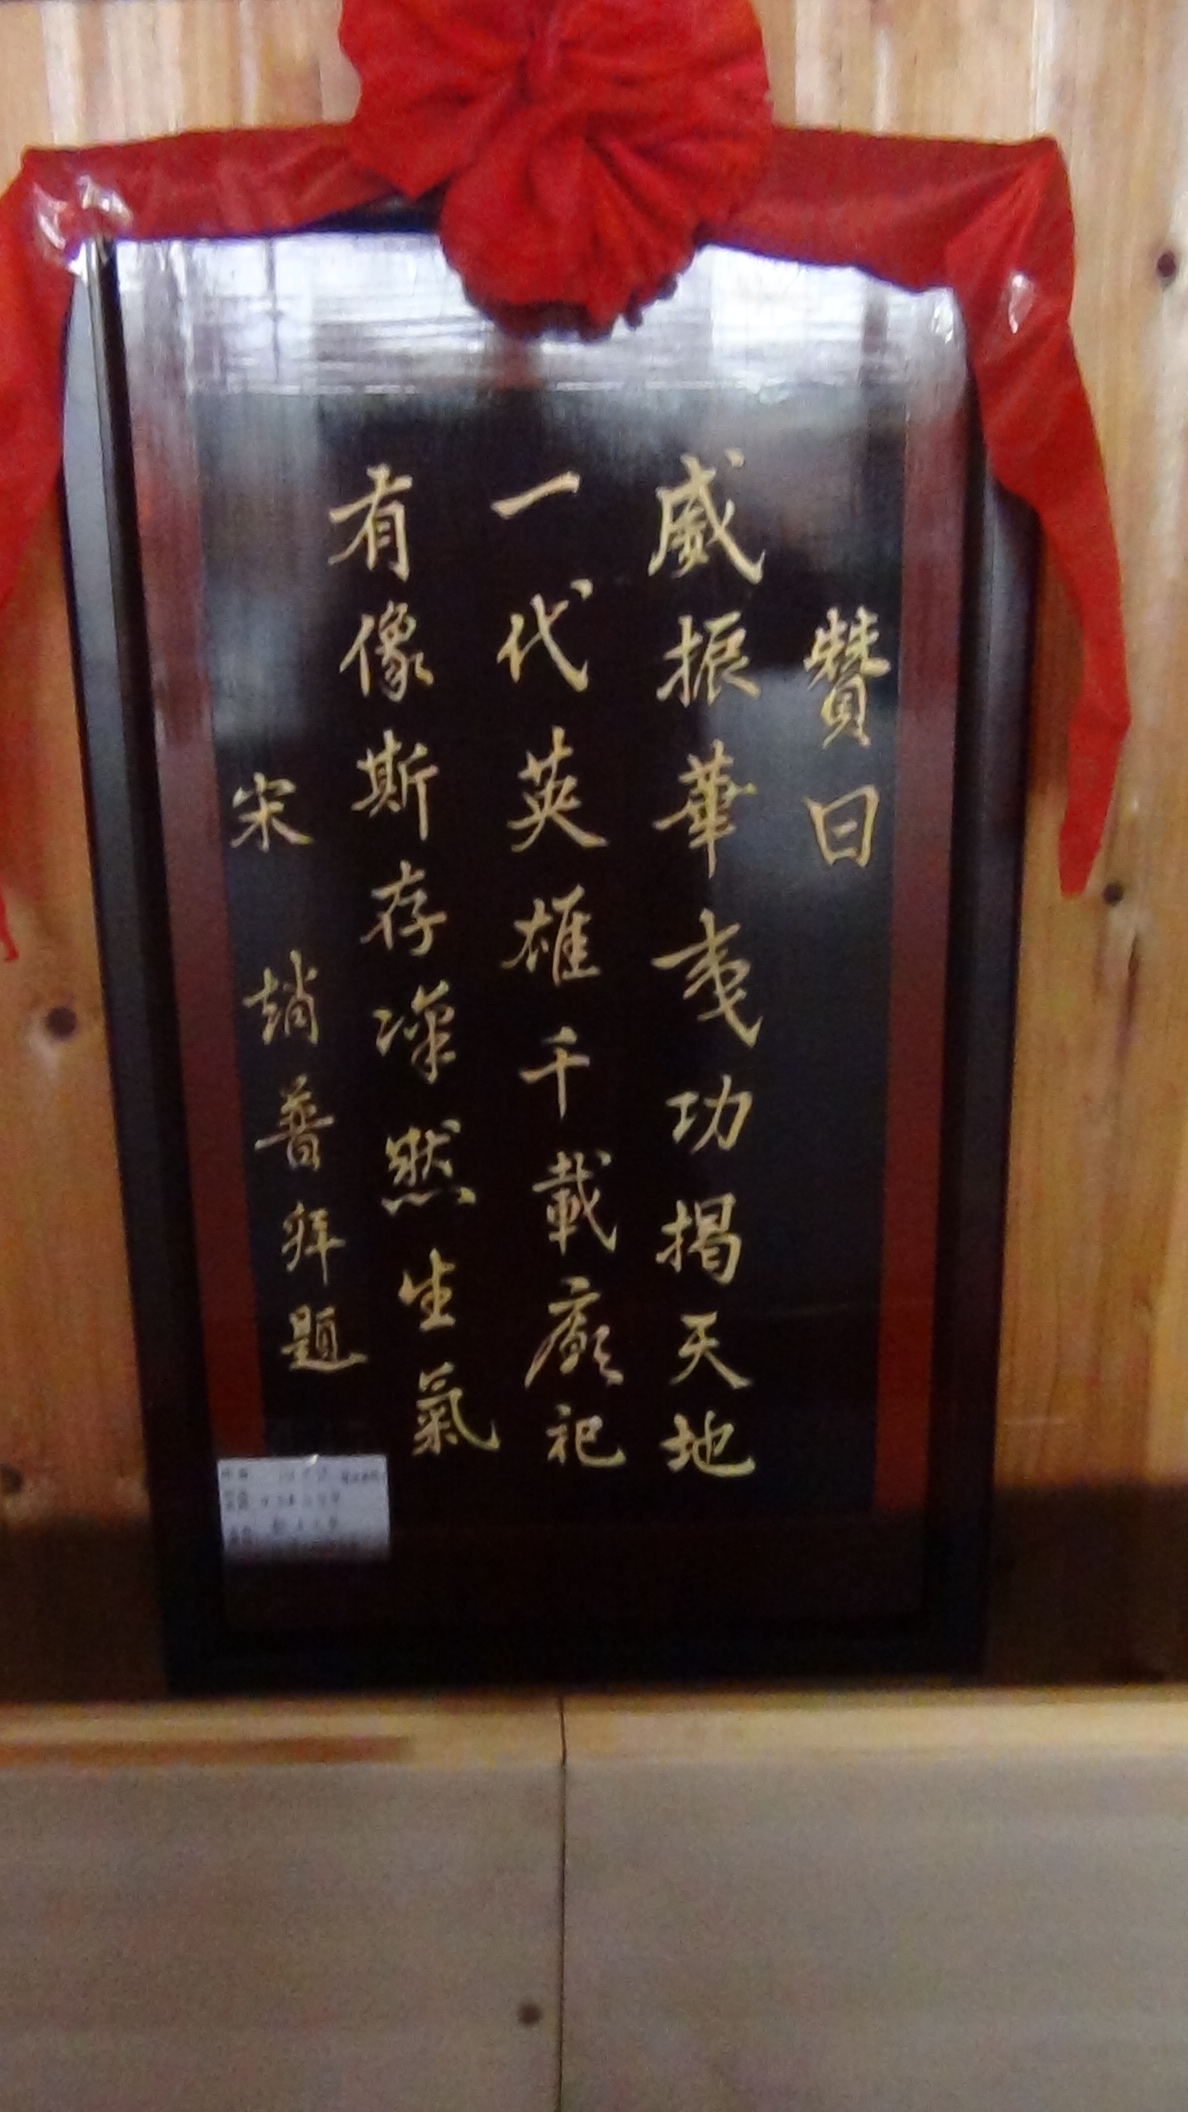 贊曰
威振華夷功揭天地
一代英雄千載廟祀
有像斯存凜然生氣
宋 趙普拜題